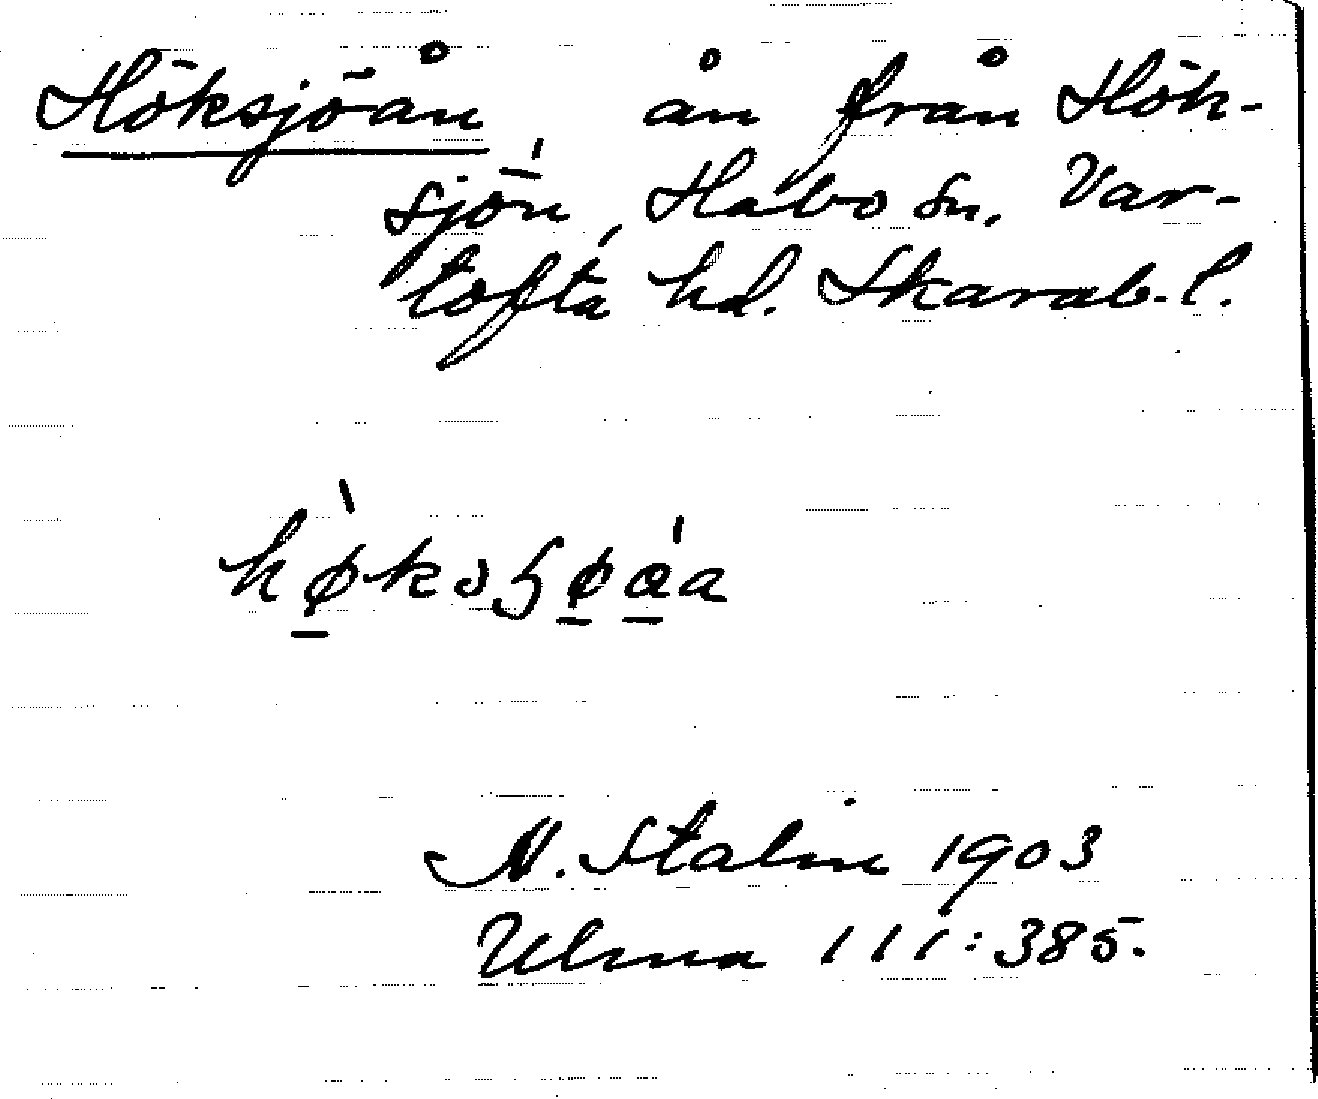 Höksjöån ån från Hök-
sjön, Habo sn, Var-
tofta hd. Skarab. l.
N. Stalin 1903
Ulma 111:385.